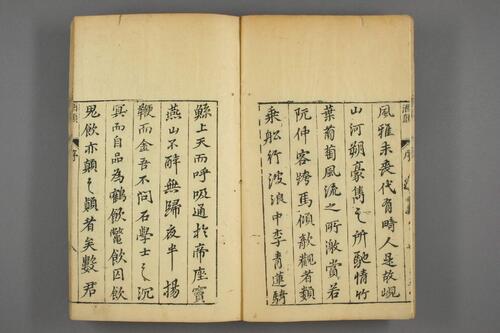 風雅未喪代有時人是故峴
山河朔豪雋之所馳情竹
葉葡萄風流之所激賞若
阮仲容跨馬傾欹觀者類
乘船行波浪中李青蓮騎
鯨上天而呼吸通於帝座寶
燕山不醉無歸夜半揚
鞭而金吾不問石學士之沉
冥而自品為鶴飲鱉飲囚飲
鬼飲亦顛之顛者矣數君
序
序